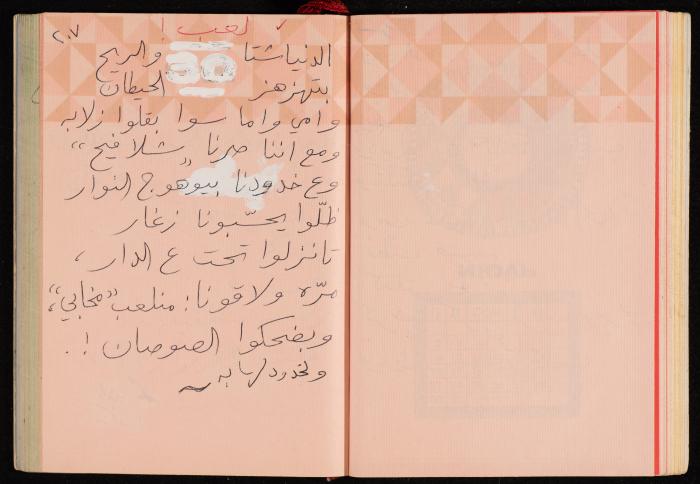 ٢٠٧
لعب !
الدنيا شتا والريح
بتهزهز الحيطان
وامي واما سوا بقلوا زلابه
ومع اننا صرنا „شلافيح“
وع خدودنا بيوهوج النوار
ظلّوا يحسّبونا زغار
تا نزلوا تحت ع الدار ،
مرّه ولاقونا: منلعب „مخابي“،
وبضحكوا الصوصان !.
وخدود لهابه